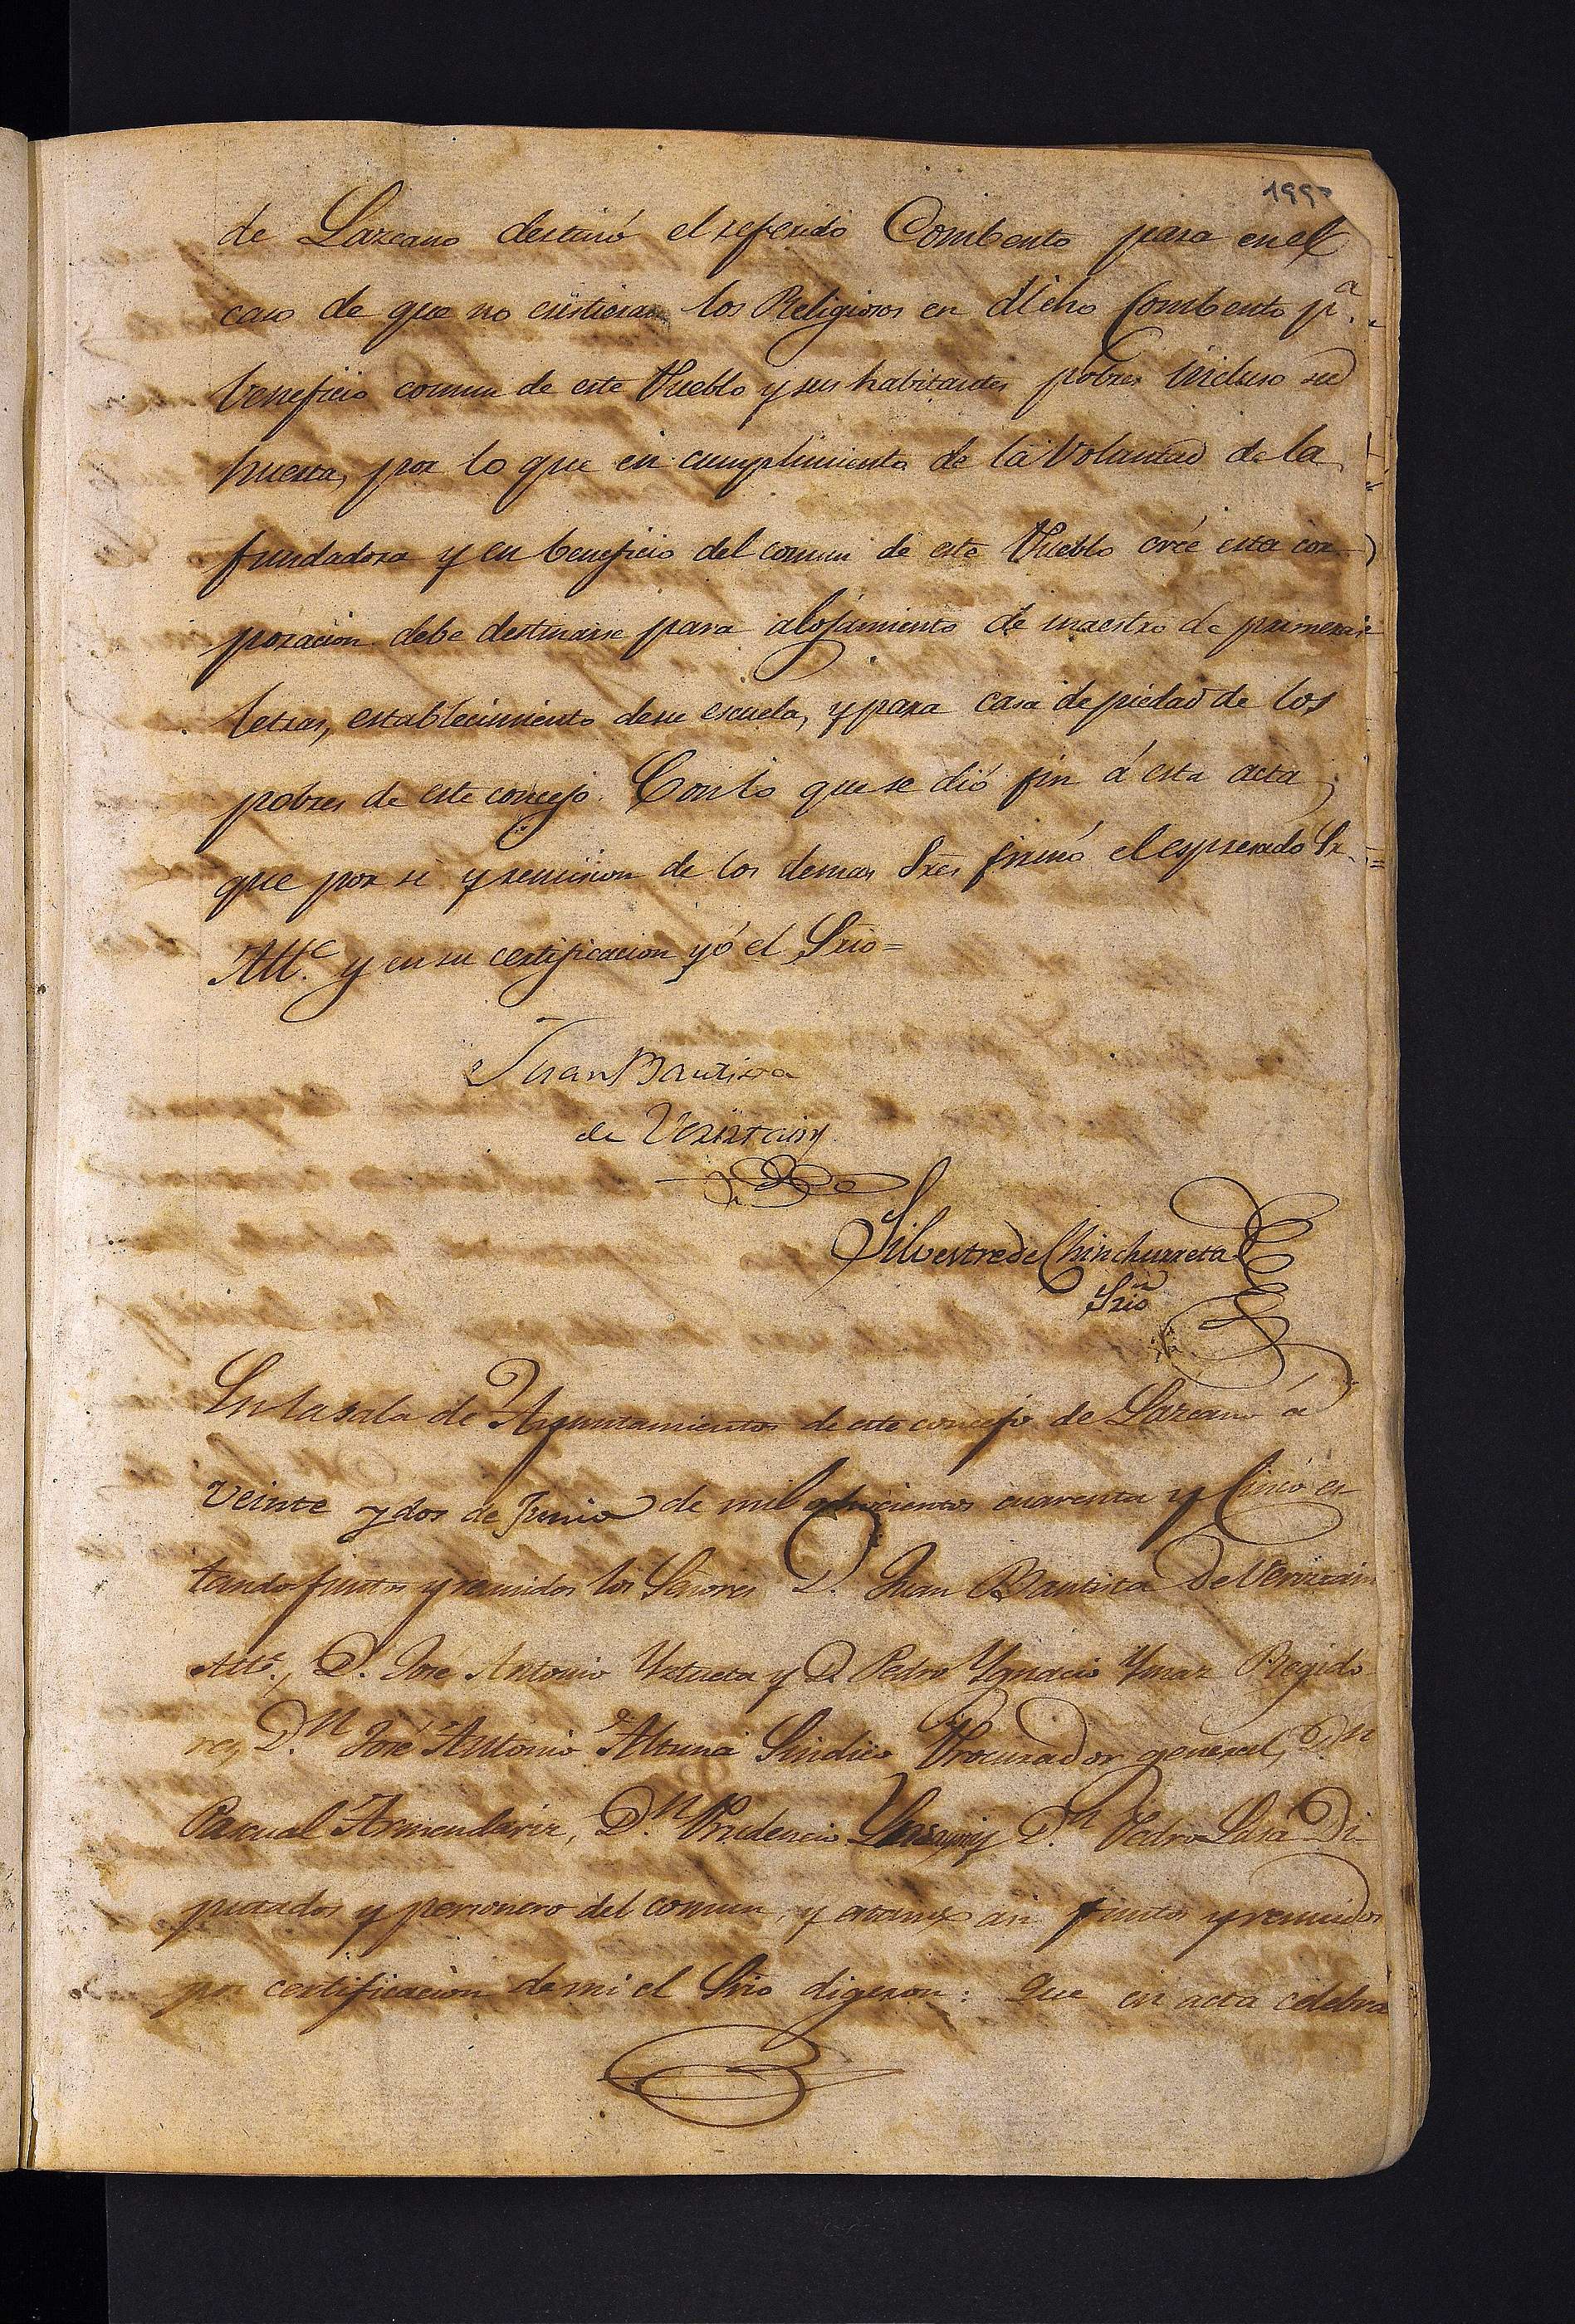 199
de Lazcano destinó el referido Combento para en el
caso de que no existieran los Religiosos en dicho Combento p.ª
beneficio comun de este Pueblo y sus habitantes pobres incluso su
huerta, por lo que en cumplimiento de la Voluntad de la
fundadora y en beneficio del comun de este Pueblo créé esta cor-
poracion debe destinarse para alojamiento de maestro de primeras
letras, establecimiento de su escuela, y para casa de piedad de los
pobres de este concejo. Con lo que se dió fin á esta acta,
que por si y remision de los demas Sres firmó el espresado Sr.
Alt.e y en su certificacion yó el Srio=
Juan Bautista
de
Silvestre de Chinchurreta
Srio
En la sala de Ayuntamientos de este concejo de Lazcano á
veinte y dos de Junio de mil ochocientos cuarenta y Cinco es
tando juntos y reunidos los Señores D. Juan Bautista de
Alt.e, D. José Antonio Yztueta y D. Pedro Ygnacio Ymaz Regido-
res, D.n José Antonio Altuna Sindico Procurador general, D.n
Pascual Armendariz, D.n Prudencio D.n Pedro Lasa Di-
putados y personero del comun, y estando asi juntos y reunidos
por certificacion de mi el Srio digeron: Que en acta celebra